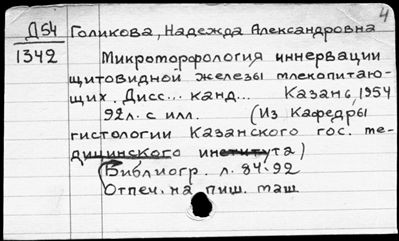 4
Д54 Голикова, Надежда Александровна
1342 Микроморфология иннервации
щитовидной железы млекопитаю-
щих. Дисс... канд... Казань, 1954
92л. с илл. (Из Кафедры
гистологии Казанского гос. ме-
дицинского института)
Библиогр. л. 84-92
Отпеч. на пиш. маш.